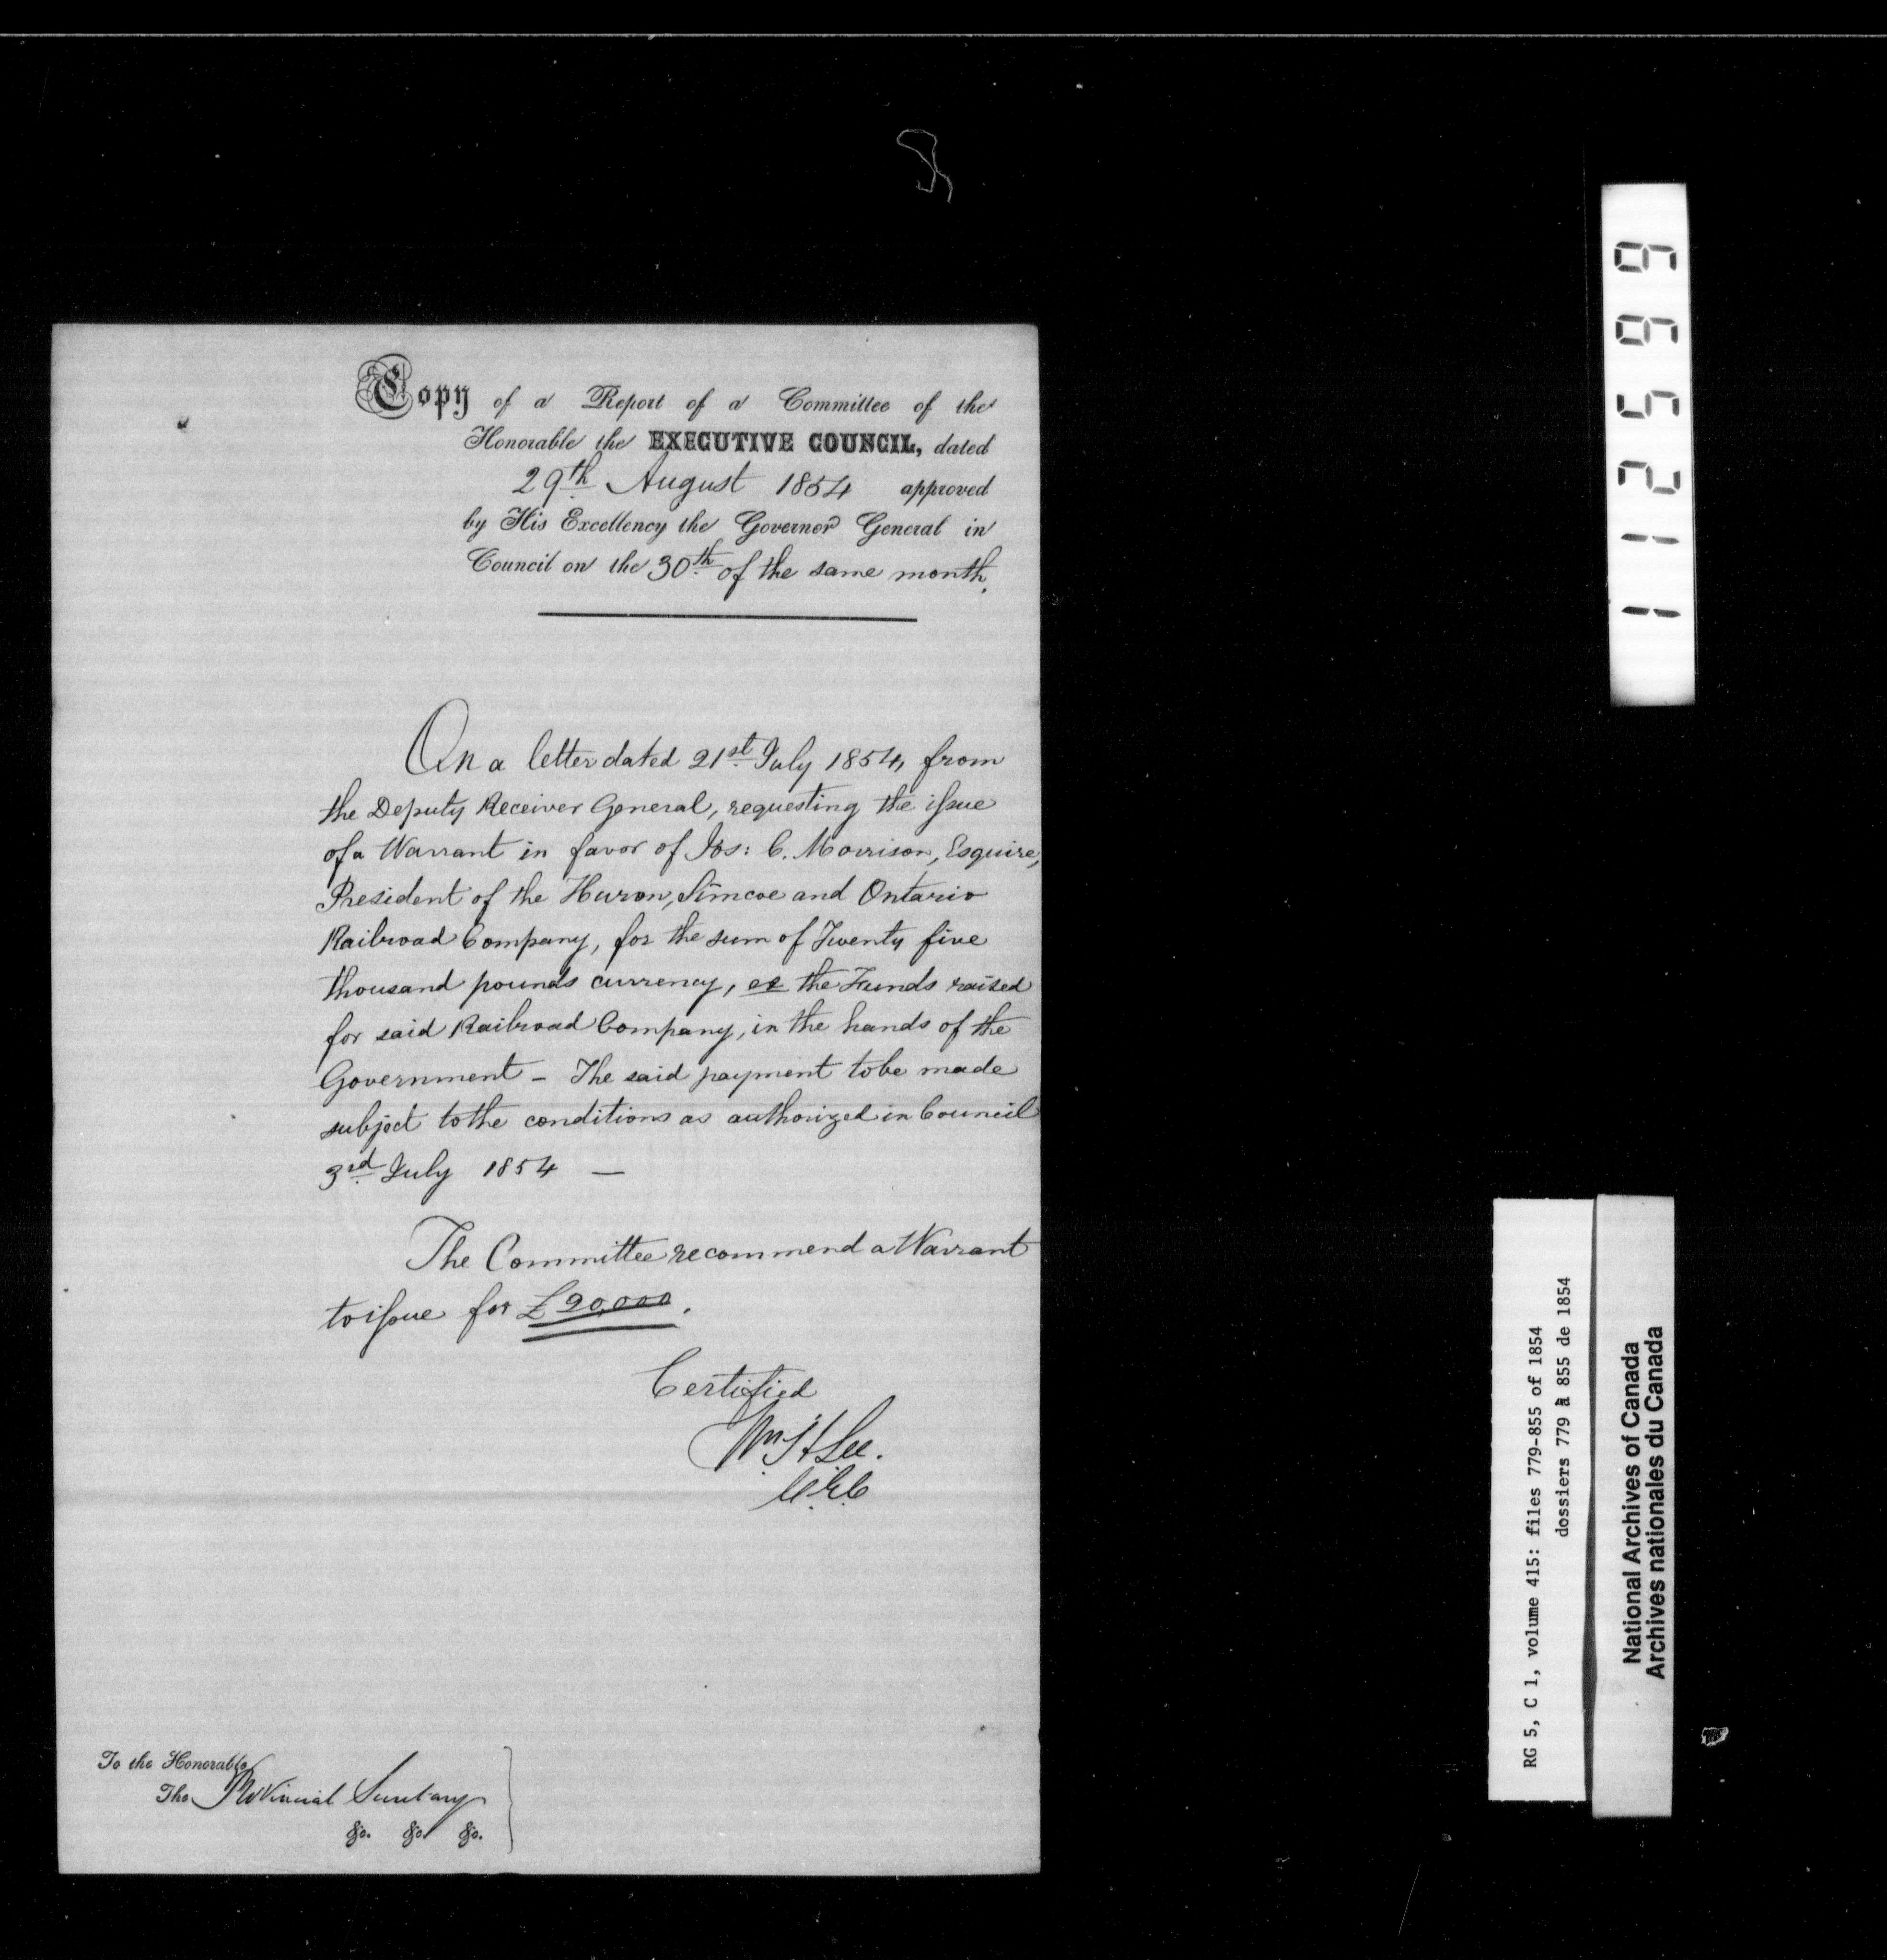 Copy of a Report of a Committee of the
Honorable the EXECUTIVE COUNCIL, dated
29th August 1854 approved
by His Excellency the Governor General in
Council on the 30th of the same month.
On a letter dated 21st July 1854, from
the Deputy Receiver General, requesting the issue
of a Warrant in favor of Jos: C. Morrison, Esquire,
President of the Huron, Simcoe and Ontario
Railroad Company, for the sum of Twenty five
thousand pounds currency, ex the Funds raised
for said Railroad Company, in the hands of the
Government – The said payment to be made
subject to the conditions as authorized in Council
3rd July 1854 —
The Committee recommend a Warrant
to issue for £20,000.
Certified
Wm H Lee.
C.E.C
To the Honorable
The Provincial Secretary
&c. &c. &c.
112569
RG 5, C 1, volume 415: files 779-855 of 1854
dossiers 779 à 855 de 1854
National Archives of Canada
Archives nationales du Canada